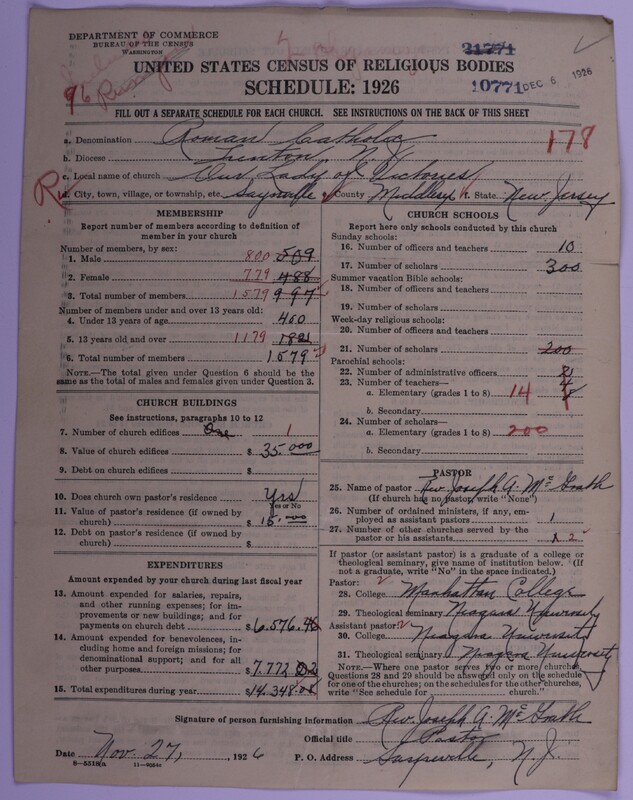 DEPARTMENT OF COMMERCE
BUREAU OF THE CENSUS
WASHINGTON
31771
UNITED STATES CENSUS OF RELIGIOUS BODIES
SCHEDULE: 1926
10771 DEC 6 1926
96
FILL OUT A SEPARATE SCHEDULE FOR EACH CHURCH. SEE INSTRUCTIONS ON THE BACK OF THIS SHEET
a. Denomination Roman Catholic
178
b. Diocese Trenton, N. J.
c. Local name of church Our Lady of Victories
d. City, town, village, or township, etc. Sayreville e. County Middlesex f. State New Jersey
MEMBERSHIP
Report number of members according to definition of
member in your church
Number of members, by sex:
1. Male 800 509
2. Female 779 488
3. Total number of members 1579 997
Number of members under and over 13 years old:
4. Under 13 years of age 400
5. 13 years old and over 1179
6. Total number of members 1579
NOTE.—The total given under Question 6 should be
same as the total of males and females given under Question 3.
CHURCH BUILDINGS
See instructions, paragraphs 10 to 12
7. Number of church edifices One 1
8. Value of church edifices $ 35.000
9. Debt on church edifices $
10. Does church own pastor's residence Yes
Yes or No
11. Value of pastor's residence (if owned by
church) $ 15.000
12. Debt on pastor's residence (if owned by
church) $
EXPENDITURES
Amount expended by your church during last fiscal year
13. Amount expended for salaries, repairs,
and other running expenses; for im-
provements or new buildings; and for
payments on church debt $ 6.576.48
14. Amount expended for benevolences, in-
cluding home and foreign missions; for
denominational support; and for all
other purposes $ 7.772
15. Total expenditures during year $ 14.348
CHURCH SCHOOLS
Report here only schools conducted by this church
Sunday schools:
16. Number of officers and teachers 10
17. Number of scholars 300
Summer vacation Bible schools:
18. Number of officers and teachers
19. Number of scholars
Week-day religious schools:
20. Number of officers and teachers
21. Number of scholars 200
Parochial schools:
22. Number of administrative officers
23. Number of teachers—
a. Elementary (grades 1 to 8) 14 8
b. Secondary
24. Number of scholars—
a. Elementary (grades 1 to 8) 200
b. Secondary
PASTOR
25. Name of pastor Rev. Joseph A. McGrath
(If church has no pastor, write "None")
26. Number of ordained ministers, if any, em-
ployed as assistant pastors 1
27. Number of other churches served by the
pastor or his assistants 2
If pastor (or assistant pastor) is a graduate of a college or
theological seminary, give name of institution below. (If
not a graduate, write "No" in the space indicated.)
Pastor:
28. College Manhattan College
29. Theological seminary Niagara University
Assistant pastor:
30. College Niagara University
31. Theological seminary Niagara University
NOTE.—Where one pastor serves two or more churches,
Questions 28 and 29 should be answered only on the schedule
for one of the churches; on the schedules for the other churches,
write "See schedule for church."
Signature of person furnishing information Rev. Joseph A. McGrath
Official title Pastor
Date Nov. 27, 1926 P. O. Address Sayreville, N. J.
8—5518a 11—9024a